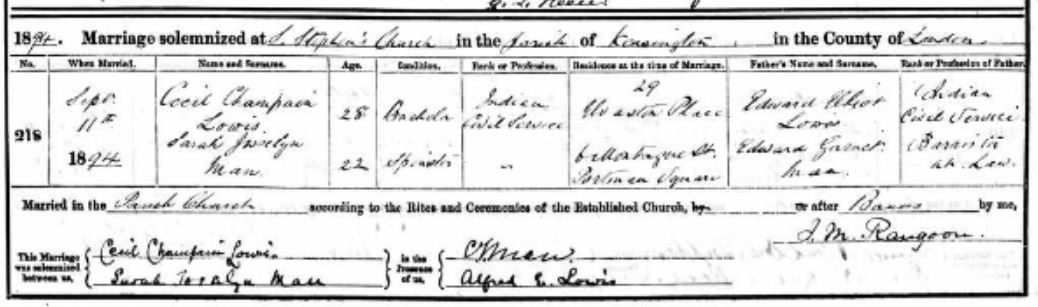 1894. Marriage solemnized at S. Stephen's Church in the Parish of Kensington in the County of London
No. When Married. Name and Surname. Age. Condition. Rank or Profession. Residence at the time of Marriage. Father's Name and Surname. Rank or Profession of Father.
218 Sept. 11th 1894 Cecil Champain Lowis 28 Bachelor Indian Civil Service 29 Ulvaston Place Edward Elliot Lowis Indian Civil Service
Sarah Josselyn Man 22 Spinster — 6 Montague St. Portman Square Edward Garnet Man Barrister at Law.
Married in the Parish Church according to the Rites and Ceremonies of the Established Church, by or after Banns by me,
J. M. Rangoon.
This Marriage was solemnized between us, { Cecil Champain Lowis. } in the Presence of us, { Man.
Sarah Josselyn Man Alfred E. Lowis